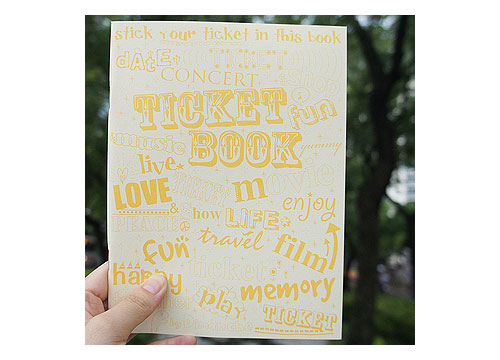 stick your ticket in this book
date
CONCERT
TICKET fun
music BOOK yummy
live
LOVE TICKET m movie
& show LIFE enjoy
PEACE travel film
fun
happy tickets
play memory
TICKET